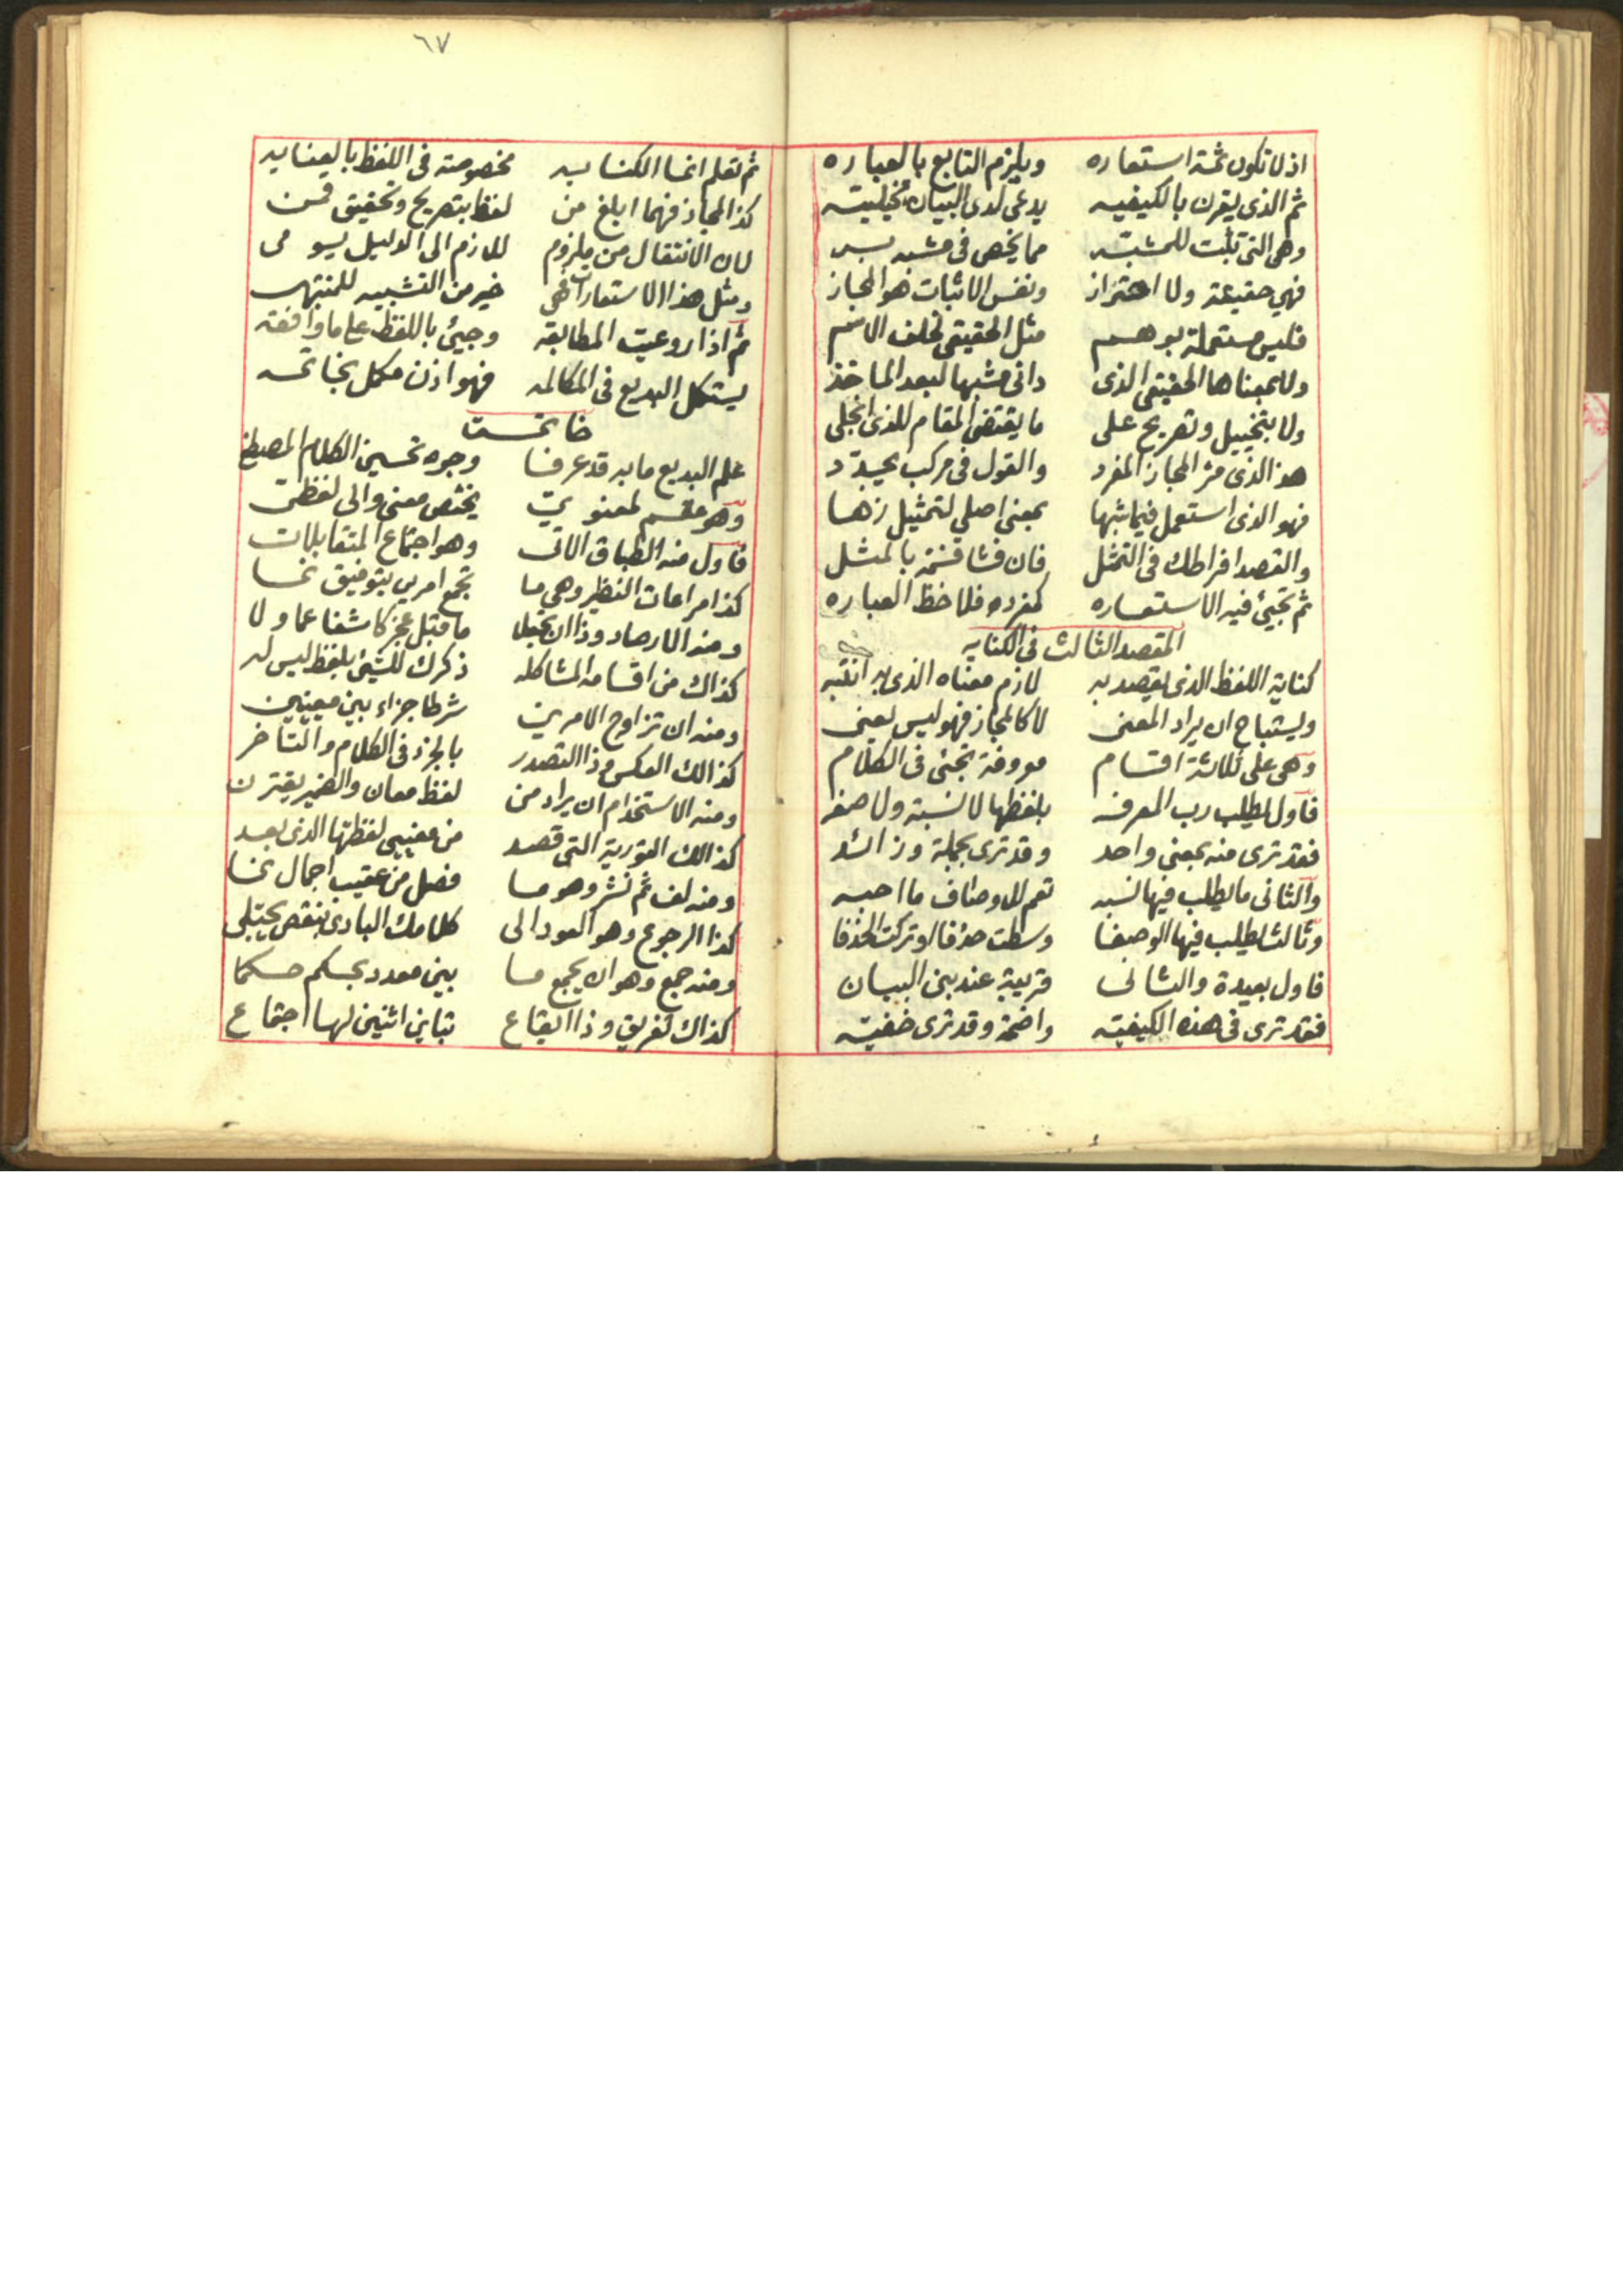 اذ لا تكون ثمة استعاره ويلزم التابع بالعباره
ثم الذي يقرن بالكيفيه يدعى لدى البيان تخيليته
وهي التي تثبت للمشبه مما يخص في مشبه به
فهي حقيقة ولا احتراز ونفس الاثبات هو المجاز
فليس مستعملة بوهم مثل الحقيقي بخلف الاسم
ولا بمعناها الحقيقي الذي داني مشبها لبعد الماخذ
ولا بتخييل وتصريح على ما يقتضي المقام للذي انجلى
هذ الذي مر المجاز المفرد والقول في مركب يجدد
فهو الذي استعمل فيما شبها بمعنى اصلي لتمثيل زها
والقصد افراطك في التمثل فان فشا فسمه بالمثل
ثم تجيئ فيه الاستعاره كمفرده فلاحظ العباره
المقصد الثالث في الكنايه
كناية اللفظ الذي يقصد به لازم معناه الذي به انتبه
ويستباح ان يراد المعنى لا كالمجاز فهو ليس يعنى
وهي على ثلاثة اقسام معروفة تجئى في الكلام
فاول لمطلب رب المعرفه بلفظها لا نسبة ولا صفه
فقد ترى منه بمعنى واحد وقد ترى بجملة وزائد
والثاني ما يطلب فيها نسبه تعم للاوصاف ما احبه
وثالثا يطلب فيها الوصفا وسطت حذفا او تركت الحذفا
فاول بعيدة والثاني قريبة عند بني البيان
فقد ترى في هذه الكيفيته واضحة وقد ترى خفيته
٦٧
ثم تعلم انما الكنايه مخصوصة في اللفظ بالعنايه
كذ المجاز فهما ابلغ من لفظ بتصريح وتحقيق قمن
لان الانتقال من ملزوم للازم الى الدليل يومى
ومثل هذا الاستعارات هي خير من التشبيه للمنتبه
ثم اذا روعيت المطابقه وجيئ باللفظ على ما وافقه
يستكمل البديع في المكالمه فهو اذن مكمل بخاتمه
خاتمت
علم البديع ما به قد عرفا وجوه تحسين الكلام المصطفى
وهو مقسم لمعنوي يختص معنى والى لفظي
فاول منه الطباق الاتى وهو اجتماع المتقابلات
كذا مراعات النظير وهي ما تجمع امرين بتوفيق نما
ومنه الارصاد وذا ان تجعلا ما قبل عجز كاشفا عما ولا
كذاك من اقسامه المشاكله ذكرك للشيئ بلفظ ليس له
ومنه ان تزاوج الامرين شرطا جزاء بين معنيين
كذالك العكس وذا التصدر بالجزء في الكلام والتأخر
ومنه الاستخدام ان يراد من لفظ معان والضمير يقترن
كذالك التورية التي قصد من معنيي لفظتها الذي بعد
ومنه لف ثم نشر وهو ما فصل من عقيب اجمال نما
كذا الرجوع وهو العود الى كلامك البادي بنقص يجتلى
ومنه جمع وهو ان يجمع ما بين معدد بحكم حكما
كذاك تفريق وذا ايقاع تباين اثنين لها اجتماع